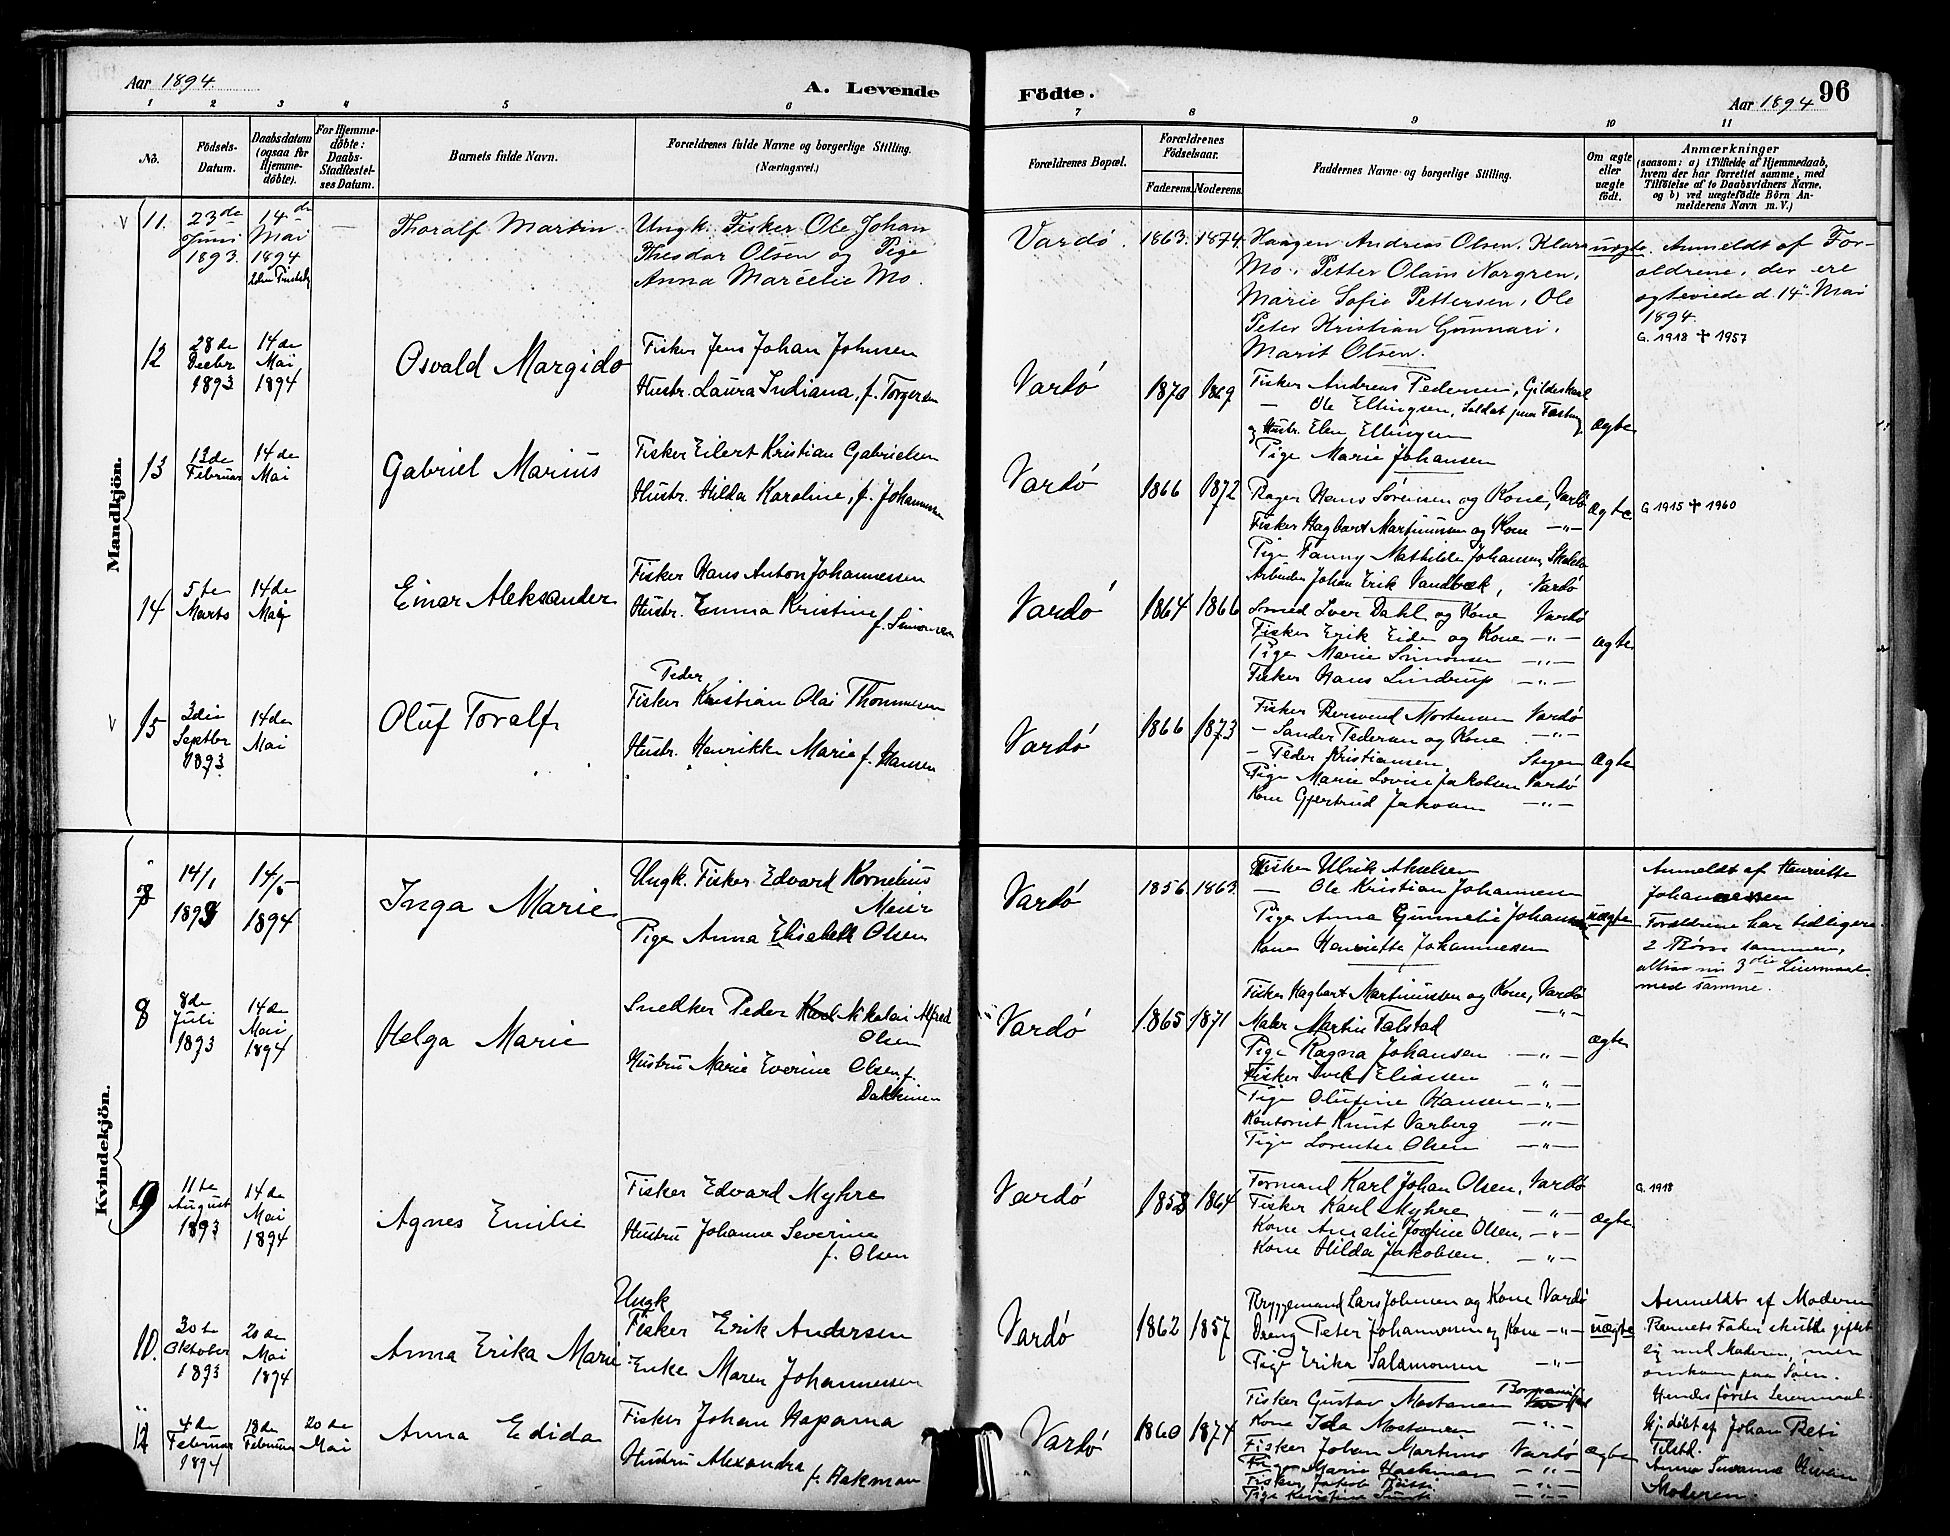 Aar 1894.
A. Levende
Födte.
Aar 1894
96
1 2 3 4 5 6 7 8 9 10 11
No.
Födsels-Datum.
Daabsdatum (ogsaa for Hjemme-döbte).
For Hjemme-döbte: Daabs-Stadfæstel-ses Datum.
Barnets fulde Navn.
Forældrenes fulde Navne og borgerlige Stilling.
(Næringsvei.)
Forældrenes Bopæl.
Forældrenes Födselsaar.
Faderens. Moderens.
Faddernes Navne og borgerlige Stilling.
Om ægte eller uægte födt.
Anmærkninger
(saasom: a) i Tilfælde af Hjemmedaab,
hvem der har forrettet samme, med
Tilföielse af to Daabsvidners Navne,
og b) ved uægtefödte Börn An-
melderens Navn m. V.)
Mandkjön.
v 11.
23de Juni 1893.
14de Mai 1894
2den Pinsedag
Thoralf Martin
Ungk. Fisker Ole Johan
Theodor Olsen og Pige
Anna Marcelie Mo.
Vardö.
1863. 1874.
Haagen Andreas Olsen. Klara
Mo. Petter Olaus Norgren.
Marie Sofie Pettersen, Ole
Peter Kristian Gunnari.
Marit Olsen.
uægte
Anmeldt af For-
ældrene, der ere
egteviede d. 14de Mai
1894.
G. 1918 ✝ 1957
12
28de Decbr 1893
14de Mai 1894
Osvald Margido
Fisker Jens Johan Johnsen
Hustr. Laura Indiana, f. Torgersen
Vardö
1870 1869
Fisker Andreas Pedersen, Gildeskaal
— Ole Ellingsen, Soldat paa Fæstning
og Hustr. Elen Ellingsen
Pige Marie Johansen
ægte
13
13de Februar
14de Mai
Gabriel Marius
Fisker Eilert Kristian Gabrielsen
Hustr. Hilda Karoline, f. Johannessen
Vardö
1866 1872
Bager Hans Sørensen og Kone, Vardö
Fisker Hagbart Martinussen og Kone —"—
Pige Fanny Mathilde Johansen
Arbeider Johan Erik Vandbæk, Vardö
ægte
G 1915 ✝ 1960
14
5te Marts
14de Mai
Einar Aleksander
Fisker Hans Anton Johannessen
Hustr. Emma Kristine f. Simonsen
Vardö
1864 1866
Smed Iver Dahl og Kone Vardö
Fisker Erik Eide og Kone —"—
Pige Marie Simonsen —"—
Fisker Hans Lindrup —"—
ægte
v 15
3die Septbr 1893
14de Mai
Oluf Toralf
Peder
Fisker Kristian Olai Thommesen
Hustr. Henrikke Marie f. Hansen
Vardö
1866 1873
Fisker Bersvend Mortensen Vardö
— Sander Pedersen og Kone —"—
— Peder Kristiansen Steigen
Pige Marie Lovise Jakobsen Vardö
Kone Gjertrud —"—
ægte
Kvindekjön.
7
14/1 1894
14/5 1894
Inga Marie
Ungk. Fisker Edvard Kornelius
Pige Anna Elisabeth Olsen
Vardö
1856. 1863.
Fisker Ulrik Akselsen
— Ole Kristian Johannesen
Pige Anna Gunnelie Johansen
Kone Henriette Johannessen
uægte
Anmeldt af Henriette
Johannessen
Forældrene har tidligere
2 Börn sammen,
altsaa nu 3die Leiermaal
med samme.
8
8de Juli 1893
14de Mai 1894
Helga Marie
Snedker Peder Karl Nikolai Alfred
Olsen
Hustru Marie Everine Olsen, f.
Vardö
1865 1871
Fisker Hagbart Martinussen og Kone, Vardö
Maler Martin Falstad —"—
Pige Ragna Johansen —"—
Fisker Eliassen —"—
Pige Olufine Hansen —"—
Kontorist Knut Varberg —"—
Pige Lorentse Olsen —"—
ægte
9
11te August 1893
14de Mai 1894
Agnes Emilie
Fisker Edvard Myhre
Hustru Johanna Severine
f. Olsen
Vardö
1858 1864
Formand Karl Johan Olsen, Vardö
Fisker Karl Myhre —"—
Kone Amalie Josefine Olsen, —"—
Kone Hilda Jakobsen. —"—
ægte
G. 1918
10.
30te Oktober 1893
20de Mai 1894
Anna Erika Marie
Ungk
Fisker Erik Andersen
Enke Maren Johannessen
Vardö
1862 1857
Bryggemand Lars Johnsen og Kone Vardö
Dreng Peter Johannesen og Kone —"—
Pige Erika Salamonsen —"—
uægte
Anmeldt af Moderen
Barnets Fader skulde giftet
sig med Moderen, men
omkom paa Söen.
Hendes første Leiermaal.
12
4de Februar 1894
18de Februar
20de Mai
Anna Edida
Fisker Johan Haparna
Hustru Alexandra
f. Hakman
Vardö
1860 1874
Fisker Gustav Mostanen
Kone Ida Mostanen —"—
Fisker Johan Martimo Vardö
Pige Marie Hackman —"—
ægte
Hj. döbt af Johan
Tilstd.
Anna Susanna
Moderen.